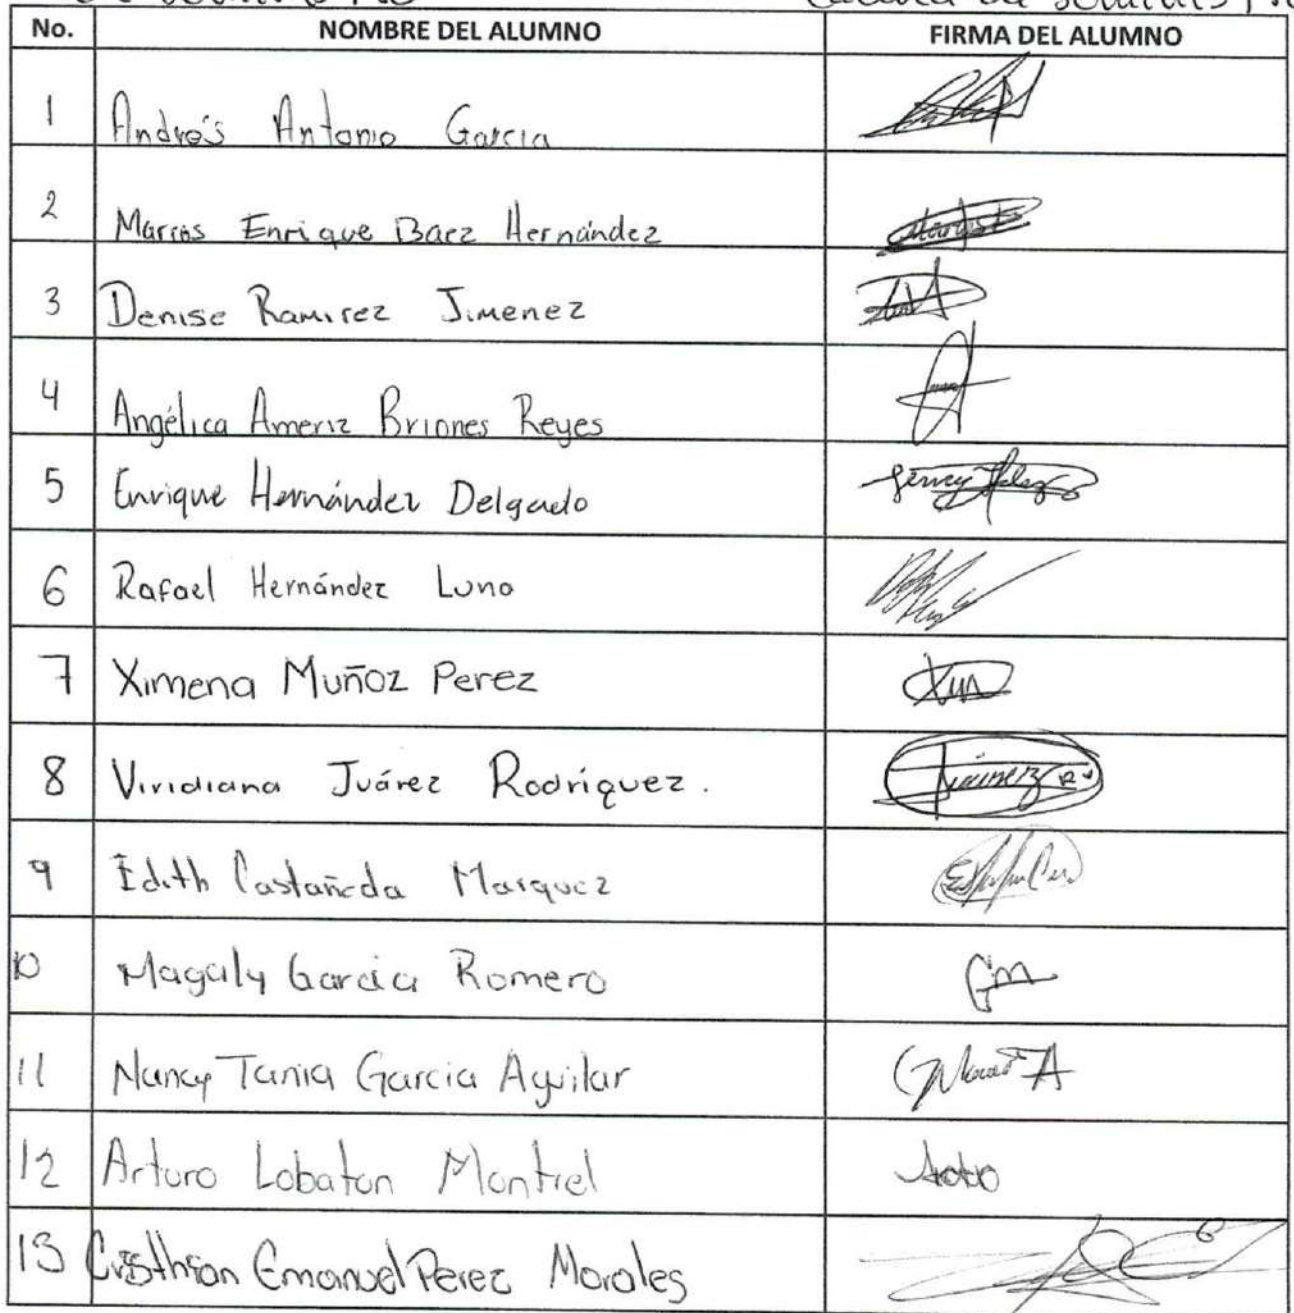 No. NOMBRE DEL ALUMNO FIRMA DEL ALUMNO
1 Andrés Antonio Garcia
2 Marcos Enrique Baez Hernández
3 Denise Ramirez Jimenez
4 Angélica Ameriz Briones Reyes
5 Enrique Hernández Delgado
6 Rafael Hernández Luna
7 Ximena Muñoz Perez
8 Viridiana Juárez Rodríguez.
9 Edith Castañeda Marquez
10 Magaly Garcia Romero
11 Nancy Tania Garcia Aguilar
12 Arturo Lobaton Montiel
13 Cristhian Emanuel Perez Morales